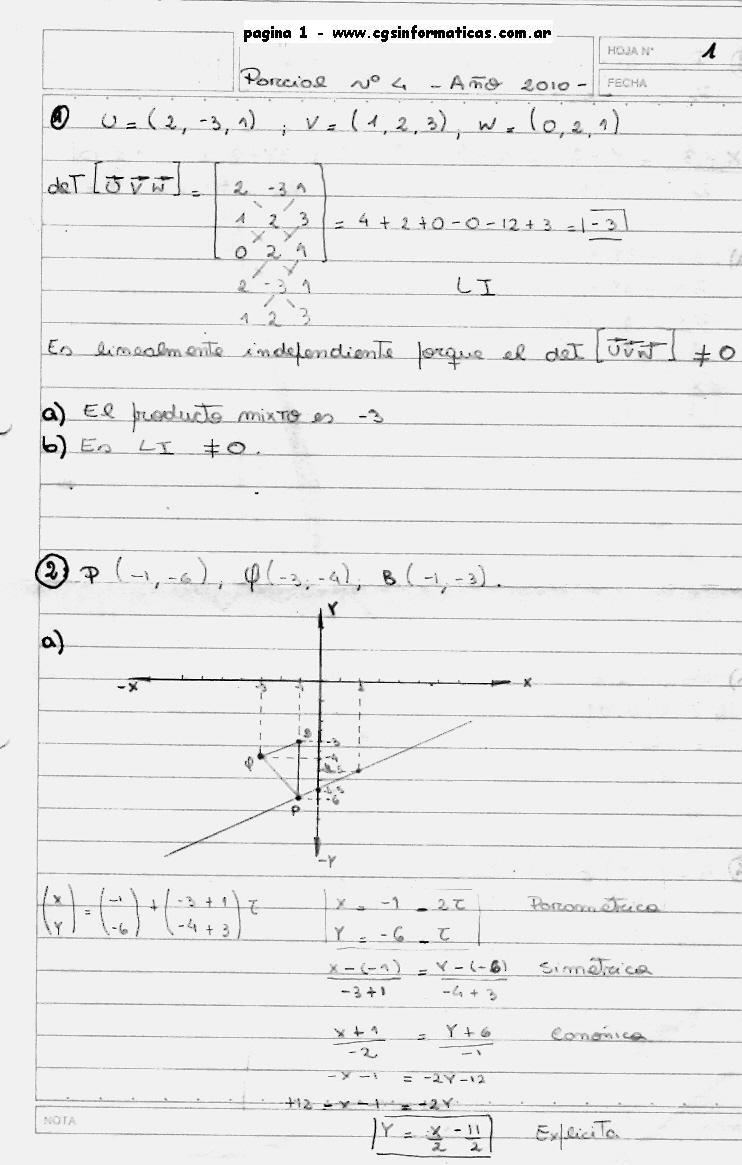 pagina 1 - www.cgsinformaticas.com.ar
HOJA N° 1
Parcial N° 4 - Año 2010 -
FECHA
1 U = (2, -3, 1) ; V = (1, 2, 3), W = (0, 2, 1)
det [U V W] = [2 -3 1
1 2 3 = 4 + 2 + 0 - 0 - 12 + 3 = -3
0 2 1]
2 -3 1 LI
1 2 3
Es linealmente independiente porque el det [U V W] ≠ 0
a) El producto mixto es -3
b) Es LI ≠ 0.
2 P (-1, -6), φ (-3, -4), B (-1, -3).
a)
Y
-X -3 -1 2 X
B -3
φ -4
P -6
-Y
(X Y) = (-1 -6) + (-3 + 1 -4 + 3) τ
X = -1 - 2τ Parametrica
Y = -6 - τ
X - (-1) / -3+1 = Y - (-6) / -4 + 3 Simétrica
X + 1 / -2 = Y + 6 / -1 Canónica
-X - 1 = -2Y - 12
+12 - X - 1 = -2Y
NOTA
Y = X/2 - 11/2 Explicita